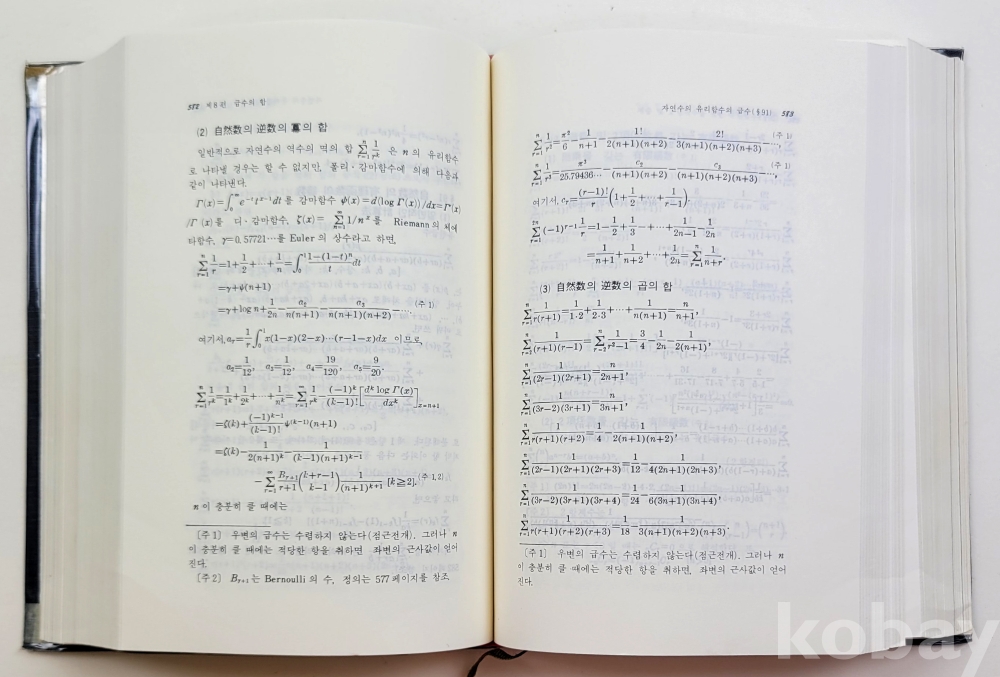 582 제8편 급수의 합
(2) 自然數의 逆數의 冪의 합
일반적으로 자연수의 역수의 멱의 합 \sum_{r=1}^{n} \frac{1}{r^k} 은 n의 유리함수
로 나타낼 경우는 할 수 없지만, 폴리·감마함수에 의해 다음과
같이 나타낸다.
Γ(x)=\int_0^∞ e^{-t}t^{x-1}dt를 감마함수 ψ(x)=d(log Γ(x))/dx=Γ'(x)
/Γ(x)를 디·감마함수, ζ(x)=\sum_{n=1}^{∞} 1/n^x를 Riemann의 제에
타함수, γ=0.57721…를 Euler의 상수라고 하면,
\sum_{r=1}^{n} \frac{1}{r}=1+\frac{1}{2}+…+\frac{1}{n}=\int_0^1 \frac{1-(1-t)^n}{t}dt
=γ+ψ(n+1)
=γ+log n+\frac{1}{2n}-\frac{a_2}{n(n+1)}-\frac{a_3}{n(n+1)(n+2)}-…. (주 1)
여기서, a_r=\frac{1}{r}\int_0^1 x(1-x)(2-x)…(r-1-x)dx 이므로,
a_2=\frac{1}{12}, a_3=\frac{1}{12}, a_4=\frac{19}{120}, a_5=\frac{9}{20}.
\sum_{r=1}^{n} \frac{1}{r^k}=\frac{1}{1^k}+\frac{1}{2^k}+…+\frac{1}{n^k}=\sum_{r=1}^{∞} \frac{1}{r^k}-\frac{(-1)^k}{(k-1)!}\left[\frac{d^k log Γ(x)}{dx^k}\right]_{x=n+1}
=ζ(k)+\frac{(-1)^{k-1}}{(k-1)!}ψ^{(k-1)}(n+1)
=ζ(k)-\frac{1}{2(n+1)^k}-\frac{1}{(k-1)(n+1)^{k-1}}
-\sum_{r=1}^{∞} \frac{B_{r+1}}{r+1}\binom{k+r-1}{k-1}\frac{1}{(n+1)^{k+1}} [k≧2]. (주 1,2)
n이 충분히 클 때에는
[주 1] 우변의 급수는 수렴하지 않는다(점근전개). 그러나 n
이 충분히 클 때에는 적당한 항을 취하면 좌변의 근사값이 얻어
진다.
[주 2] B_{r+1}는 Bernoulli의 수, 정의는 577페이지를 참조
자연수의 유리함수의 급수(§91) 583
\sum_{r=1}^{n} \frac{1}{r^2}=\frac{π^2}{6}-\frac{1}{n+1}-\frac{1!}{2(n+1)(n+2)}-\frac{2!}{3(n+1)(n+2)(n+3)}-…, (주 1)
\sum_{r=1}^{n} \frac{1}{r^3}=\frac{π^3}{25.79436…}-\frac{c_2}{(n+1)(n+2)}-\frac{c_3}{(n+1)(n+2)(n+3)}-…, (주 1)
여기서, c_r=\frac{(r-1)!}{r}\left(1+\frac{1}{2}+…+\frac{1}{r-1}\right).
\sum_{r=1}^{2n} (-1)^{r-1}\frac{1}{r}=1-\frac{1}{2}+\frac{1}{3}-…+\frac{1}{2n-1}-\frac{1}{2n}
=\frac{1}{n+1}+\frac{1}{n+2}+…+\frac{1}{2n}=\sum_{r=1}^{n} \frac{1}{n+r}.
(3) 自然數의 逆數의 곱의 합
\sum_{r=1}^{n} \frac{1}{r(r+1)}=\frac{1}{1·2}+\frac{1}{2·3}+…+\frac{1}{n(n+1)}=\frac{n}{n+1},
\sum_{r=2}^{n} \frac{1}{(r+1)(r-1)}=\sum_{r=2}^{n} \frac{1}{r^2-1}=\frac{3}{4}-\frac{1}{2n}-\frac{1}{2(n+1)},
\sum_{r=1}^{n} \frac{1}{(2r-1)(2r+1)}=\frac{n}{2n+1},
\sum_{r=1}^{n} \frac{1}{(3r-2)(3r+1)}=\frac{n}{3n+1},
\sum_{r=1}^{n} \frac{1}{r(r+1)(r+2)}=\frac{1}{4}-\frac{1}{2(n+1)(n+2)},
\sum_{r=1}^{n} \frac{1}{(2r-1)(2r+1)(2r+3)}=\frac{1}{12}-\frac{1}{4(2n+1)(2n+3)},
\sum_{r=1}^{n} \frac{1}{(3r-2)(3r+1)(3r+4)}=\frac{1}{24}-\frac{1}{6(3n+1)(3n+4)},
\sum_{r=1}^{n} \frac{1}{r(r+1)(r+2)(r+3)}=\frac{1}{18}-\frac{1}{3(n+1)(n+2)(n+3)}.
[주 1] 우변의 급수는 수렴하지 않는다(점근전개). 그러나 n
이 충분히 클 때에는 적당한 항을 취하면, 좌변의 근사값이 얻어
진다.
kobay